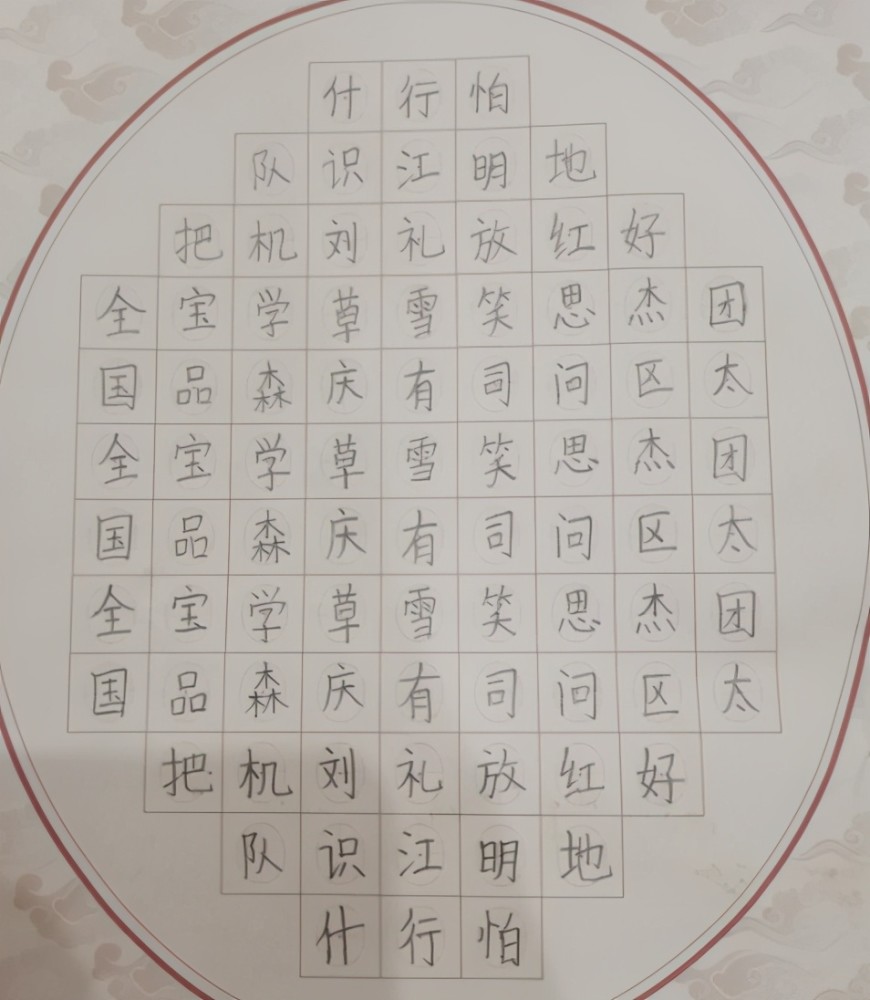 什行怕
队识江明地
把机刘礼放红好
全宝学草雪笑思杰团
国品森庆有司问区太
全宝学草雪笑思杰团
国品森庆有司问区太
全宝学草雪笑思杰团
国品森庆有司问区太
把机刘礼放红好
队识江明地
什行怕